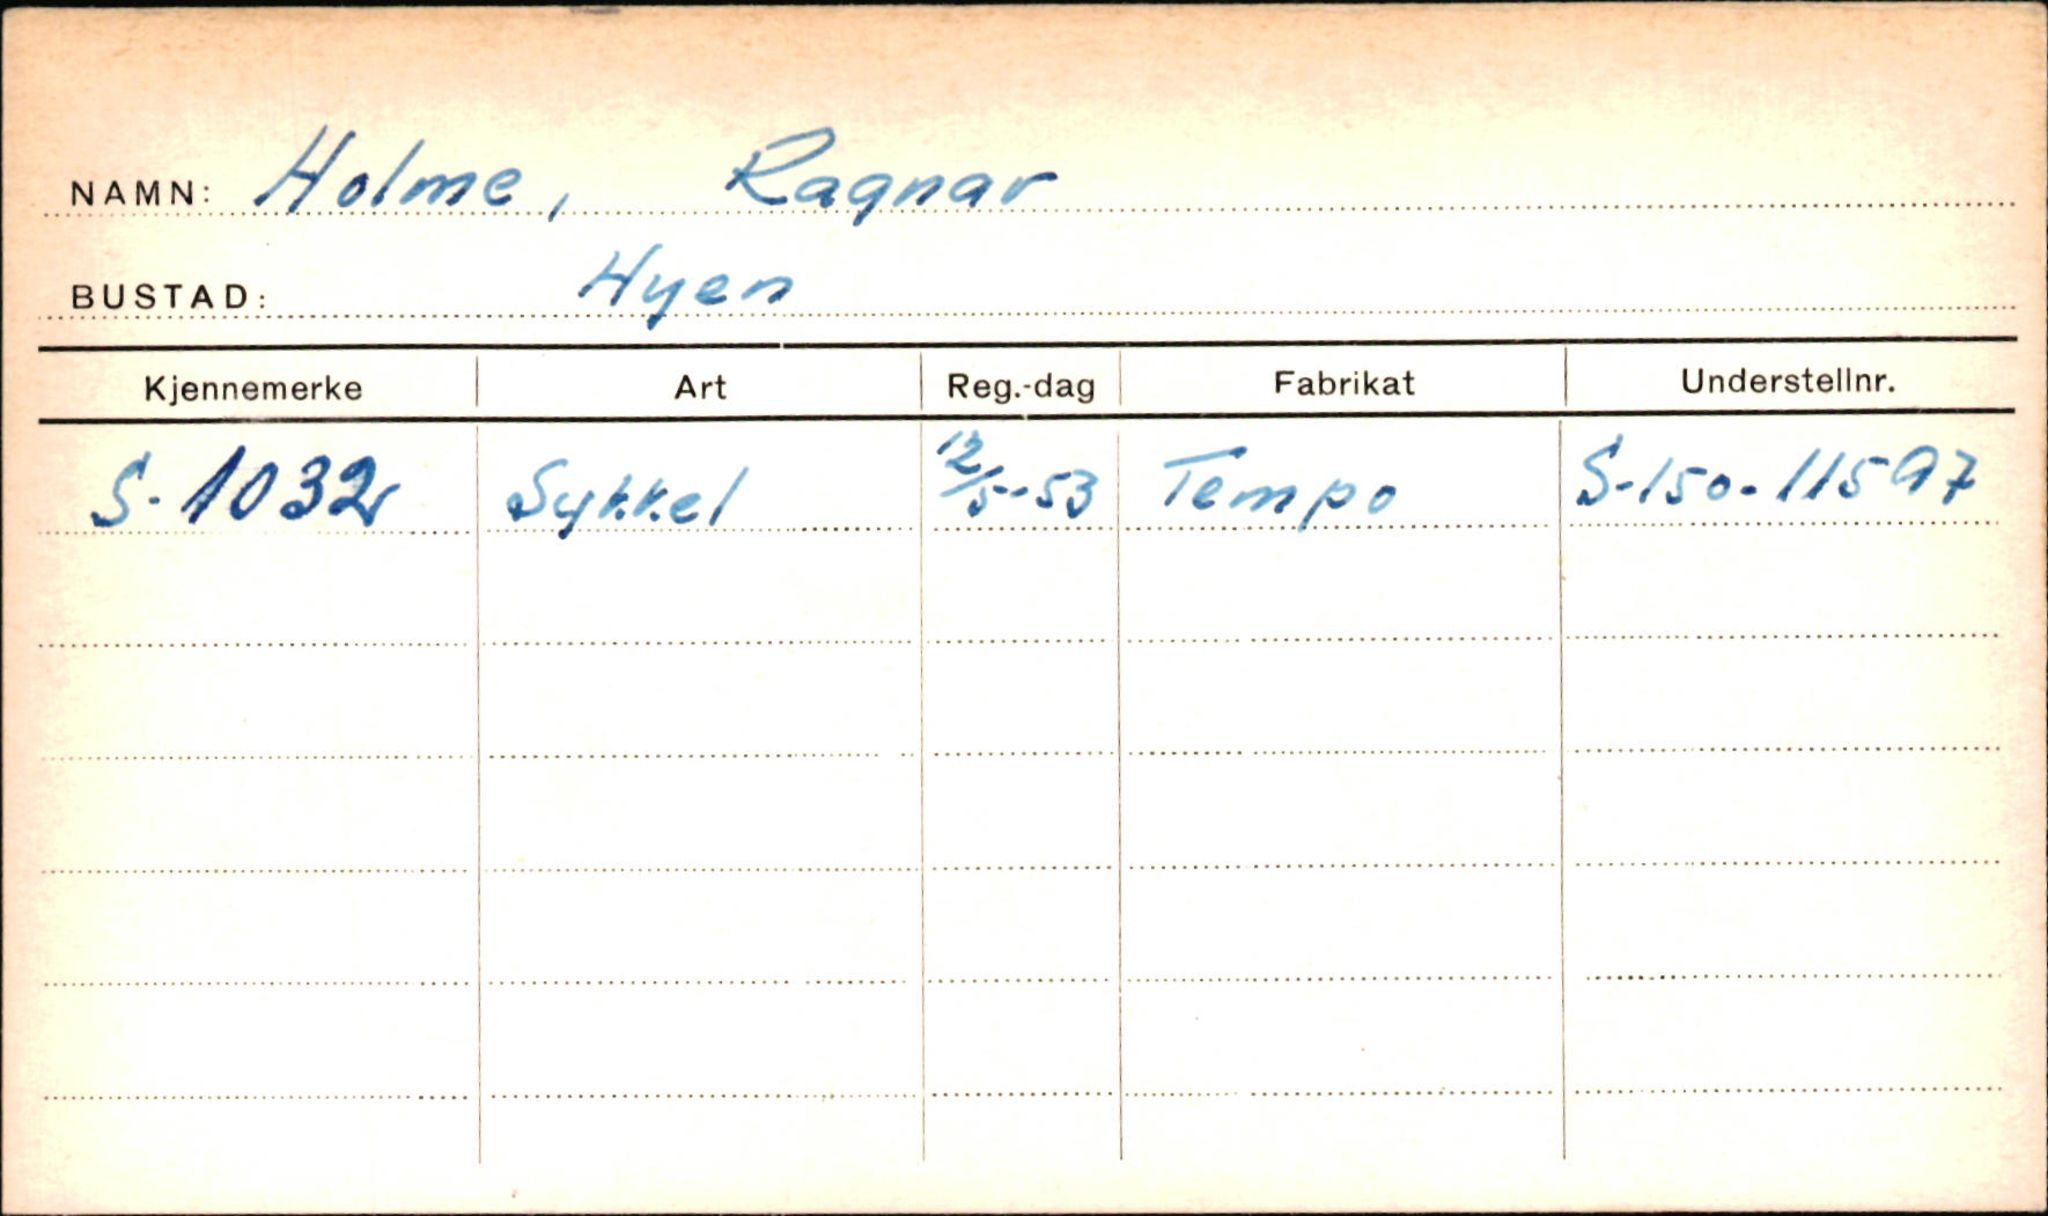 NAMN: Holme, Ragnar
BUSTAD: Hyen
Kjennemerke Art Reg.-dag Fabrikat Understellnr.
S-1032 Sykkel 12/5-53 Tempo S-150-11597